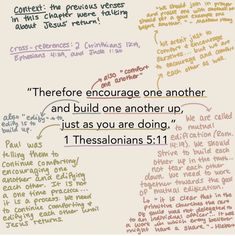 Context: the previous verses
in this chapter were talking
about Jesus' return!
We should join in prayer
and
cross-references: 2 Corinthians 12:19,
Ephesians 4:29, and Jude 1:20
we aren't just
to comfort & encourage
ourselves, but we are
to encourage and comfort
each other as well
also "comfort one
another"
"Therefore encourage one another
and build one another up,
just as you are doing."
1 Thessalonians 5:11
also "edify" -
edify is to
build up.
Paul was
telling them to
continue comforting/
encouraging one
another and edifying
each other. It is not
a one time process...
it is a process. We need
to continue comforting &
edifying each other until
Jesus returns.
We are called
to mutual
edification (Rom.
14:19). We should
strive to build each
other up in the truth,
not tear each other
down. We need to work
together towards the goal
of mutual edification.
"it is clear that in the
primitive churches the care
of souls was not delegated to
an individual officer.. it was
a work in which every
might have a share." - Hiebert